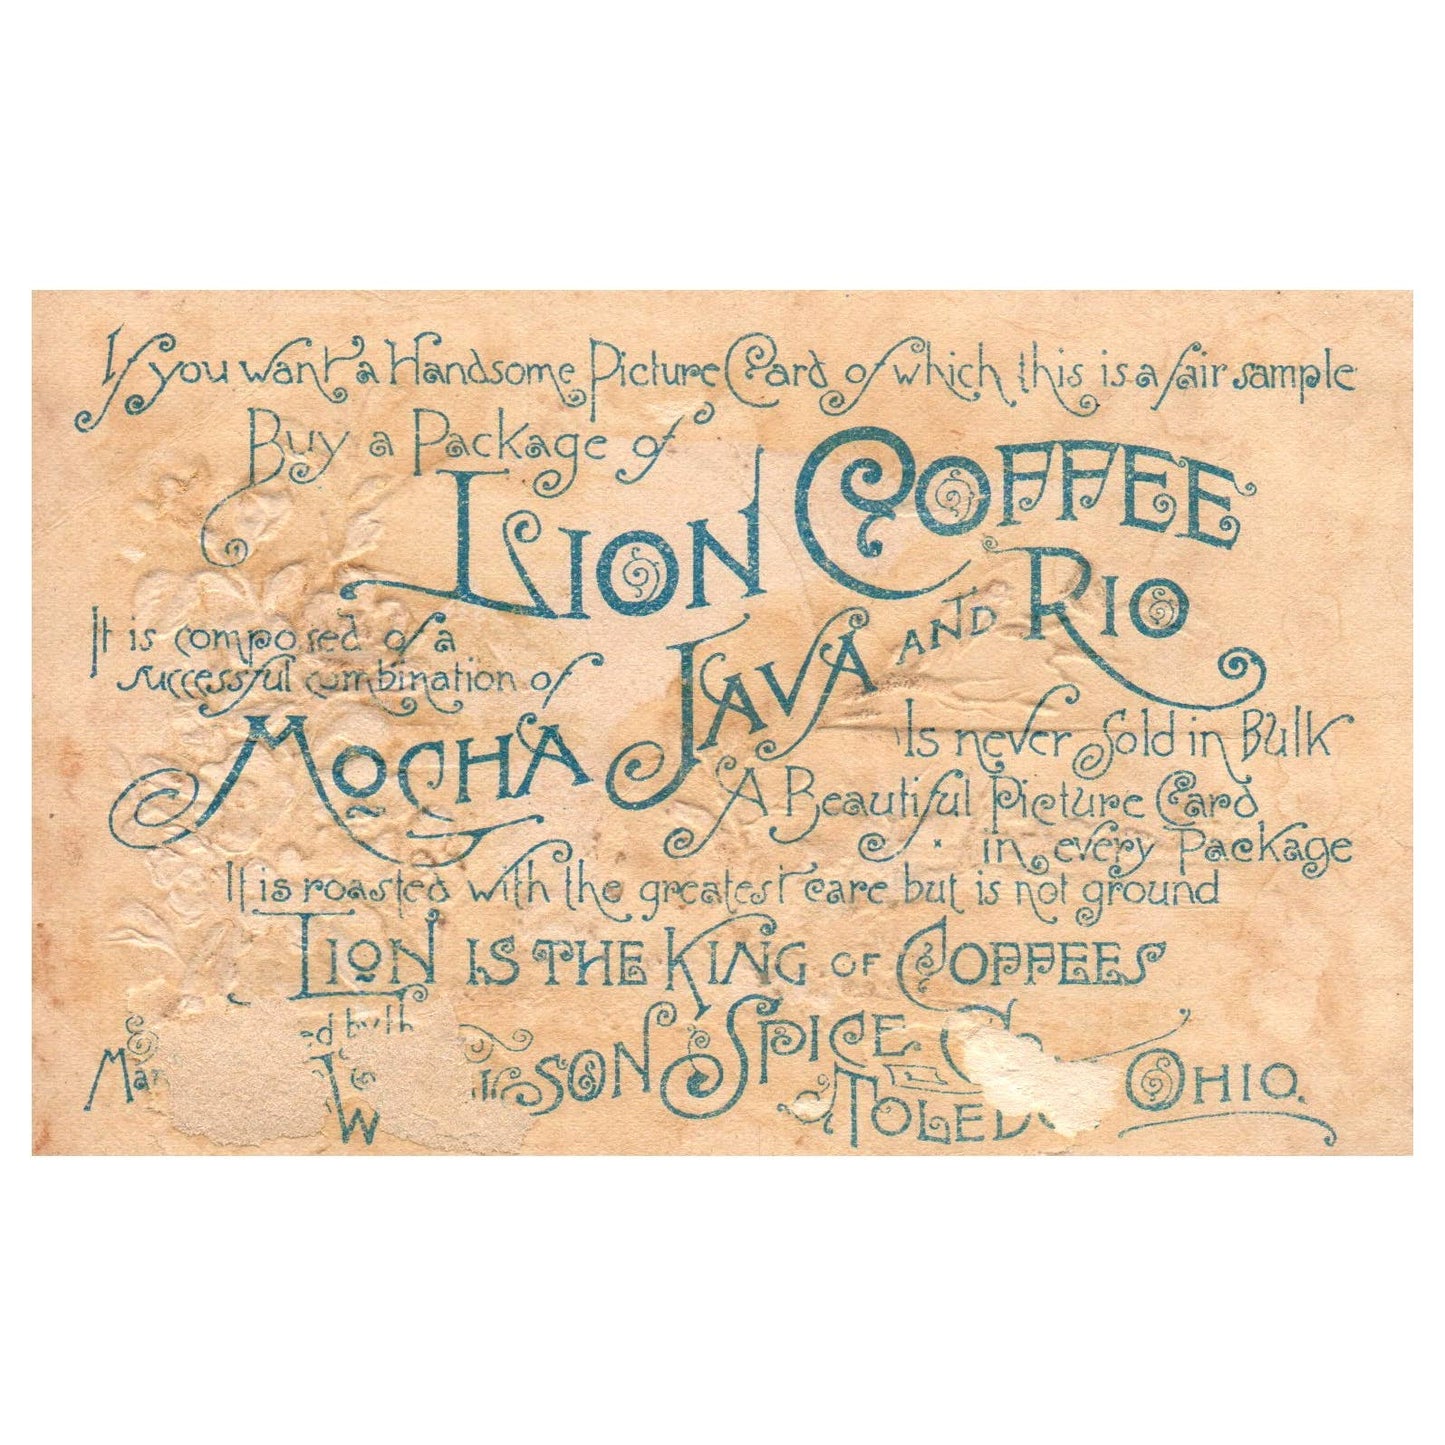 If you want a Handsome Picture Card of which this is a fair sample
Buy a Package of
LION COFFEE
It is composed of a
successful combination of
MOCHA JAVA AND RIO
Is never Sold in Bulk
A Beautiful Picture Card
in every Package
It is roasted with the greatest care but is not ground
LION IS THE KING OF COFFEES
SPICE Co
TOLEDO OHIO.